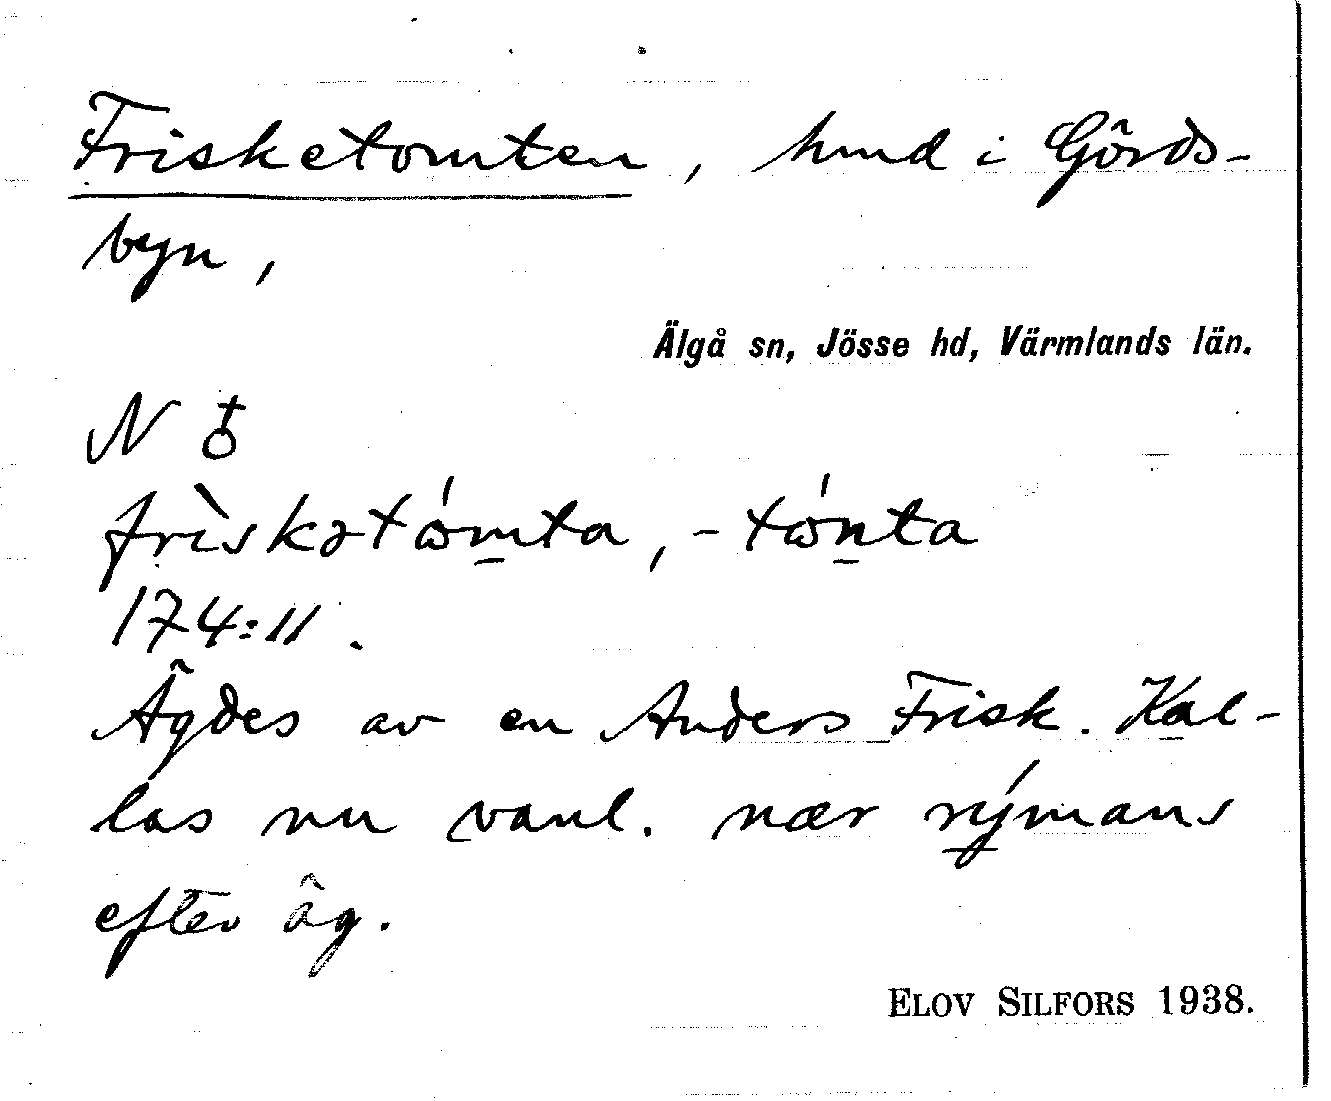 Frisketomten, hmd i Gôrds-
byn,
Älgå sn, Jösse hd, Värmlands län.
N ♁
frìskətómta, -tónta
174:11.
Ägdes av en Anders Frisk. Kal-
las nu vanl. nær nýmans
efter äg.
ELOV SILFORS 1938.